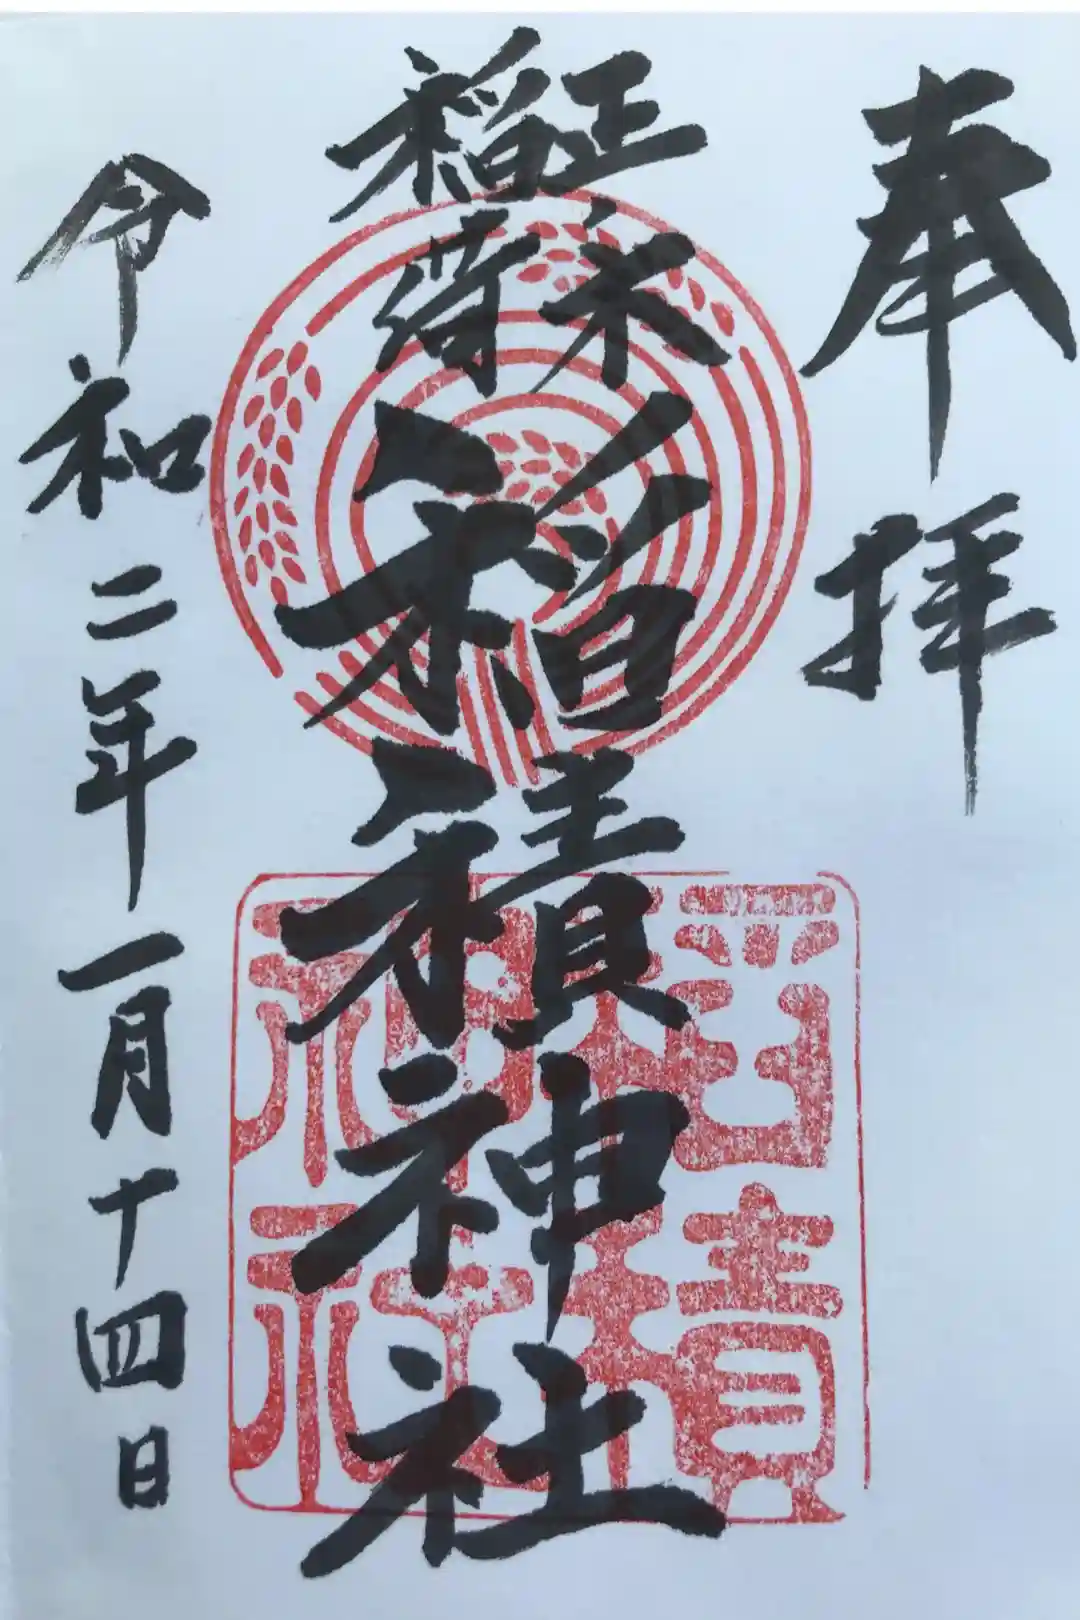 奉拝
正ノ木
稲荷
稲積神社
稲積
神社
令和二年一月十四日